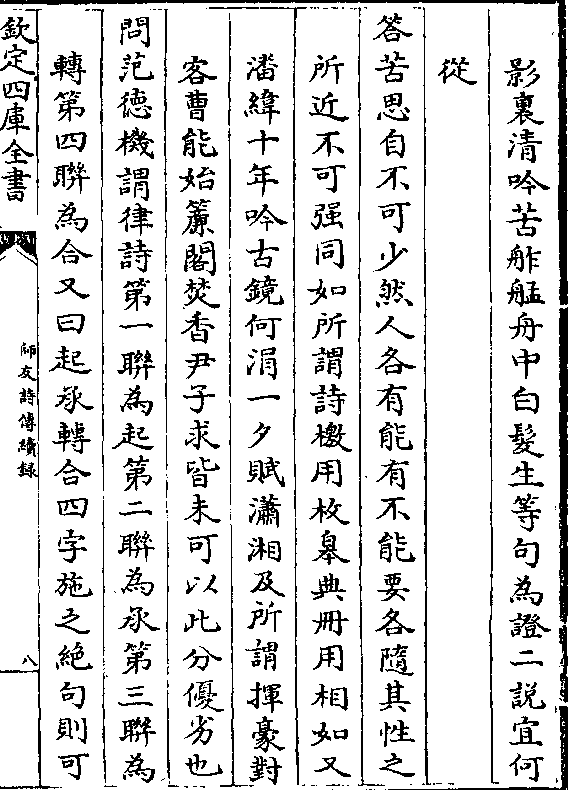 影裏清吟苦舴艋舟中白髮生等句為證二說宜何
從
答苦思自不可少然人各有能有不能要各隨其性之
所近不可强同如所謂詩檄用枚皋典冊用相如又
潘緯十年吟古鏡何涓一夕賦瀟湘及所謂揮豪對
客曹能始簾閣焚香尹子求皆未可以此分優劣也
問范德機謂律詩第一聯為起第二聯為承第三聯為
轉第四聯為合又曰起承轉合四字施之絶句則可
欽定四庫全書
師友詩傳續錄
八